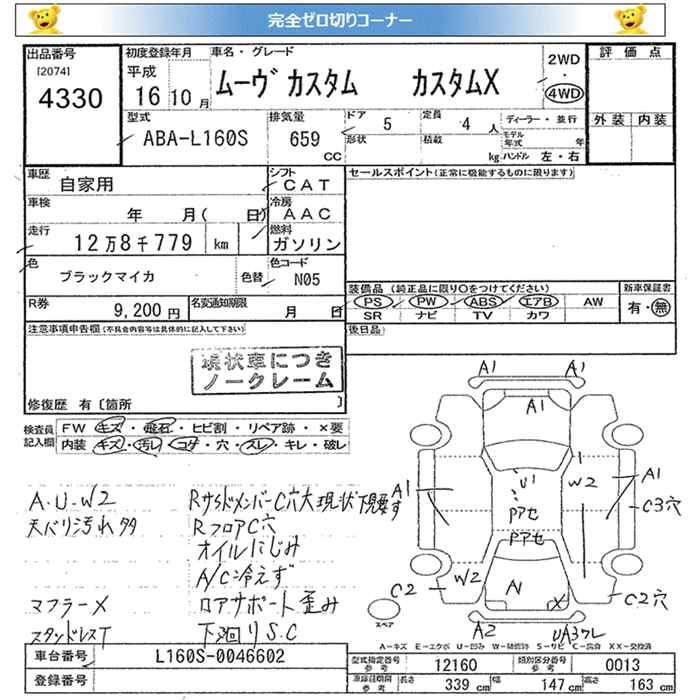 完全ゼロ切りコーナー
出品番号 初度登録年月 車名・グレード 評価点
[2074] 平成 2WD
4330 16 10月 ムーヴ カスタム カスタムX ・ 4WD
型式 排気量 ドア 5 定員 4人 ディーラー・並行 外装 内装
ABA-L160S 659 CC 形状 積載 kg モデル年式 年
ハンドル 左・右
車歴 自家用 シフト CAT セールスポイント(正常に機能するものに限ります)
車検 年 月( 日) 冷房 AAC
走行 12万8千779 km 燃料 ガソリン
色 ブラックマイカ 色替 色コード N05
装備品(純正品に限り〇をつけてください) 新車保証書
R券 9,200円 名変通知期限 月 日 PS PW ABS エアB AW 有・無
SR ナビ TV カワ
注意事項申告欄(不具合内容等は具体的に記入して下さい) 後日品
現状車につき
ノークレーム
修復歴 有〔箇所 〕
検査員 FW キズ・飛石・ヒビ割・リペア跡・×要
記入欄 内装 キズ・汚レ・コゲ・穴・スレ・キレ・破レ
A1 A1
A1
A.U.W2 RサイドメンバーC穴大現状下腰要す
天バリ汚れ多 RフロアC穴
オイルにじみ
A/C冷えず
マフラーX ロアサポート歪み
スタッドレスT 下廻りS.C
A1 U1 W2 A1
C3穴
PアセPアセ
W2 C2 A X C2穴
スペア A2 UA3ワレ
A-キズ E-エクボ U-凹み W-補修跡 S-サビ C-腐食 X XX-交換済
車台番号 L160S-0046602 型式指定番号 参考 12160 類別区分番号 参考 0013
登録番号 長さ 339 cm 幅 147 cm 高さ 163 cm